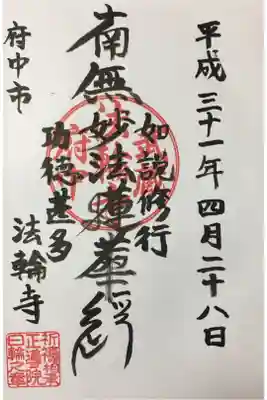 平成三十一年四月二十八日
如説修行
南無妙法蓮華経
功徳甚多
府中市
法輪寺